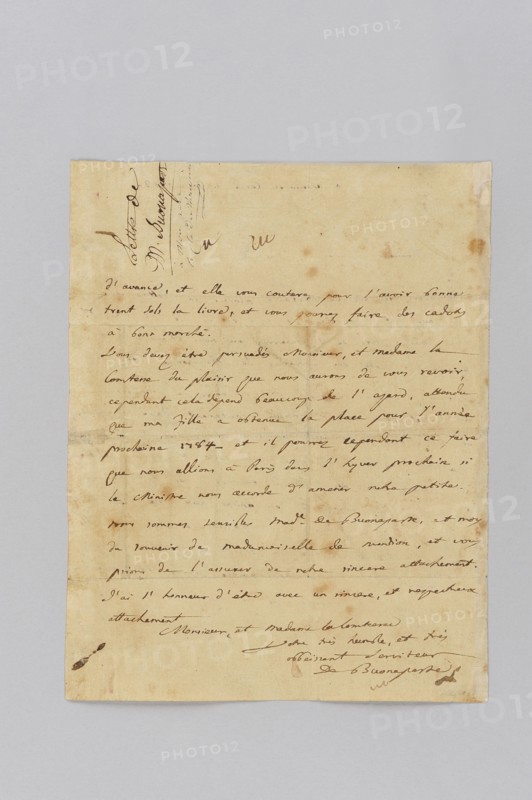 PHOTO12
Lettre de
M. Buonapar
d'avance, et elle vous coutera pour l'avoir bonne
trent sols la livre, et vous pourrez faire des cadots
à bons marché.
Vous devez être persuadés Monsieur, et madame la
Comtesse du plaisir que nous aurons de vous revoir,
cependent cela depend beaucoup de l'azard, attendu
que ma fille a obtenue la place pour l'année
prochaine 1784 et il pourrez cependent ce faire
que nous allions à Paris dans l'hyver prochain si
le Ministre nous accorde d'amener notre petite.
nous sommes sensibles Mad.e de Buonaparte, et moy
du souvenir de mademoiselle de et vous
prions de l'assurer de notre sincere attachement.
J'ai l'honneur d'être avec un sincere, et respectueux
attachement
Monsieur, et Madame la Comtesse
Votre très humble, et très
obbeissant Serviteur
De Buonaparte